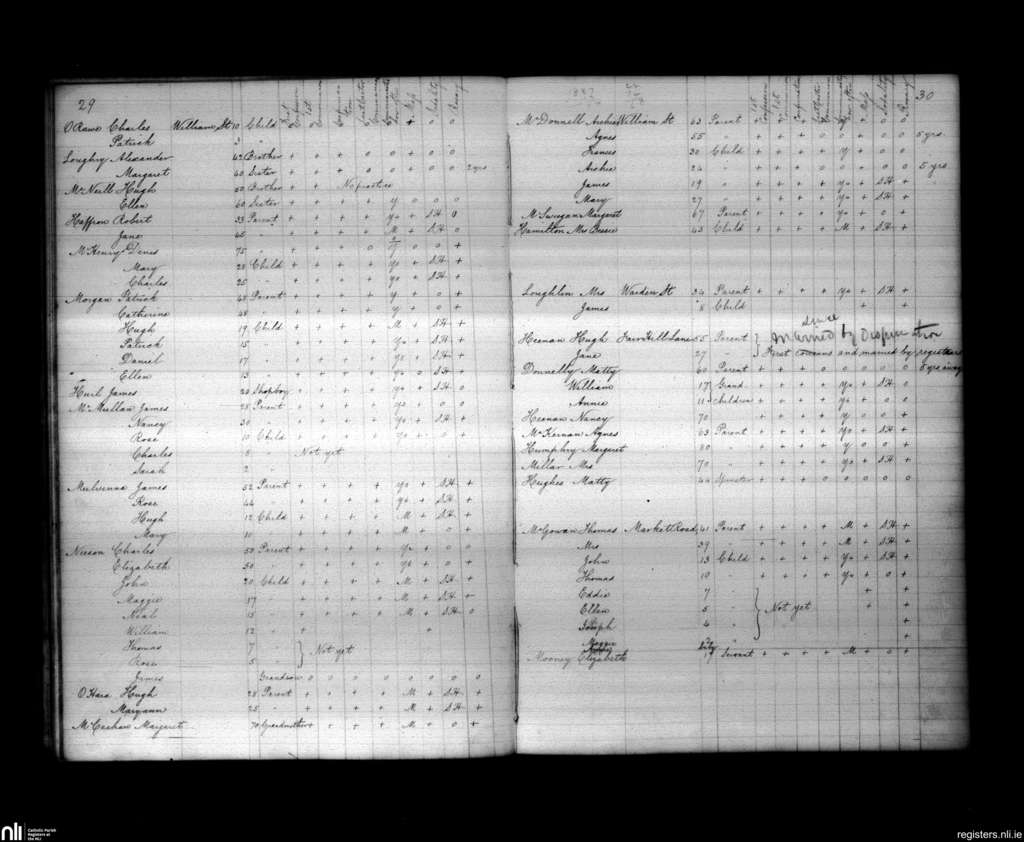 29
O'Rawe Charles William St 10 Child + o o
Patrick 3 "
Loughry Alexander 42 Brother + + + o o + o o
Margaret 40 Sister + + + o o + o o 2 yrs
McNeill Hugh 50 Brother + + No practice
Ellen 60 Sister + + + + y o o o
Haffron Robert 33 Parent + + + + yo + SH o
Jane 45 " + + + + M + SH o
McHenry Denis 75 + + + o o o +
Mary 28 Child + + + + yo + SH +
Charles 25 " + + + + yo + SH +
Morgan Patrick 48 Parent + + + + y + o +
Catherine 48 " + + + + y + o +
Hugh 19 Child + + + + M + SH +
Patrick 15 " + + + + yo + SH +
Daniel 17 " + + + + yo + SH +
" Ellen 13 " + + + + yo o SH +
Hurl James 20 Shopboy + + + + yo + SH o
McMullan James 28 Parent + + + + yo + o o
Nancy 30 " + + + + yo + SH +
Rose 10 Child + + + + yo + o +
Charles 5 " Not yet
Sarah 2 "
Mulvenna James 52 Parent + + + + yo + SH +
Rose 44 " + + + + yo + SH +
Hugh 12 Child + + + + M + SH +
Mary 10 " + + + + M + o +
Neeson Charles 50 Parent + + + + yo + o o
Elizabeth 50 " + + + + yo + o o
John 20 Child + + + + M + SH +
Maggie 17 " + + + + M + SH +
Neal 15 " + + + + M + SH o
William 12 " + +
Thomas 7 " } Not yet
Rose 5 "
James Grandson o o o o o o o o
O'Hara Hugh 28 Parent + + + + M + SH +
Maryann 25 " + + + + M + SH +
McCashan Margaret 70 Grandmother + + + + M + o +
30
McDonnell Archie William St 63 Parent + + + + + o o
Agnes 55 " + + + o o + o o 5 yrs
Francis 30 Child + + + + y + o o
Archie 24 " + + + o o + o o 5 yrs
James 19 " + + + + yo + SH +
Mary 27 " + + + + yo + SH +
McSwegan Margaret 67 Parent + + + + yo + o +
Hamilton Mrs Bessie 43 Child + + + + M + SH +
Loughlin Mrs Warden St 34 Parent + + + + yo + SH +
James 8 Child + +
since
Heenan Hugh Fair Hill Lane 55 Parent } married by Dispensation
Jane 27 " First cousins and married by registrar
Donnelly Matty 60 Parent + + + o o o o o 5 yrs away
William 17 Grand + + + + yo + SH o
Annie 11 children + + + + yo + o o
Heenan Nancy 70 + + + + y o o +
McKernan Agnes 63 Parent + + + + yo + SH +
Humphry Margaret 80 " + + + + y o o +
Millar Mrs 70 " + + + + yo + SH +
Hughes Matty 44 Spinster + + + o o o o o
McGowan Thomas Market Road 41 Parent + + + + M + SH +
Mrs 39 " + + + + M + SH +
John 13 Child + + + + yo + SH +
Thomas 10 " + + + + yo + o +
Eddie 7 " + +
Ellen 5 " } Not yet + +
Joseph 4 " +
Maggie +
Mooney Elizabeth Servant + + + + M + o +
nli
Catholic Parish
Registers at
the NLI
registers.nli.ie